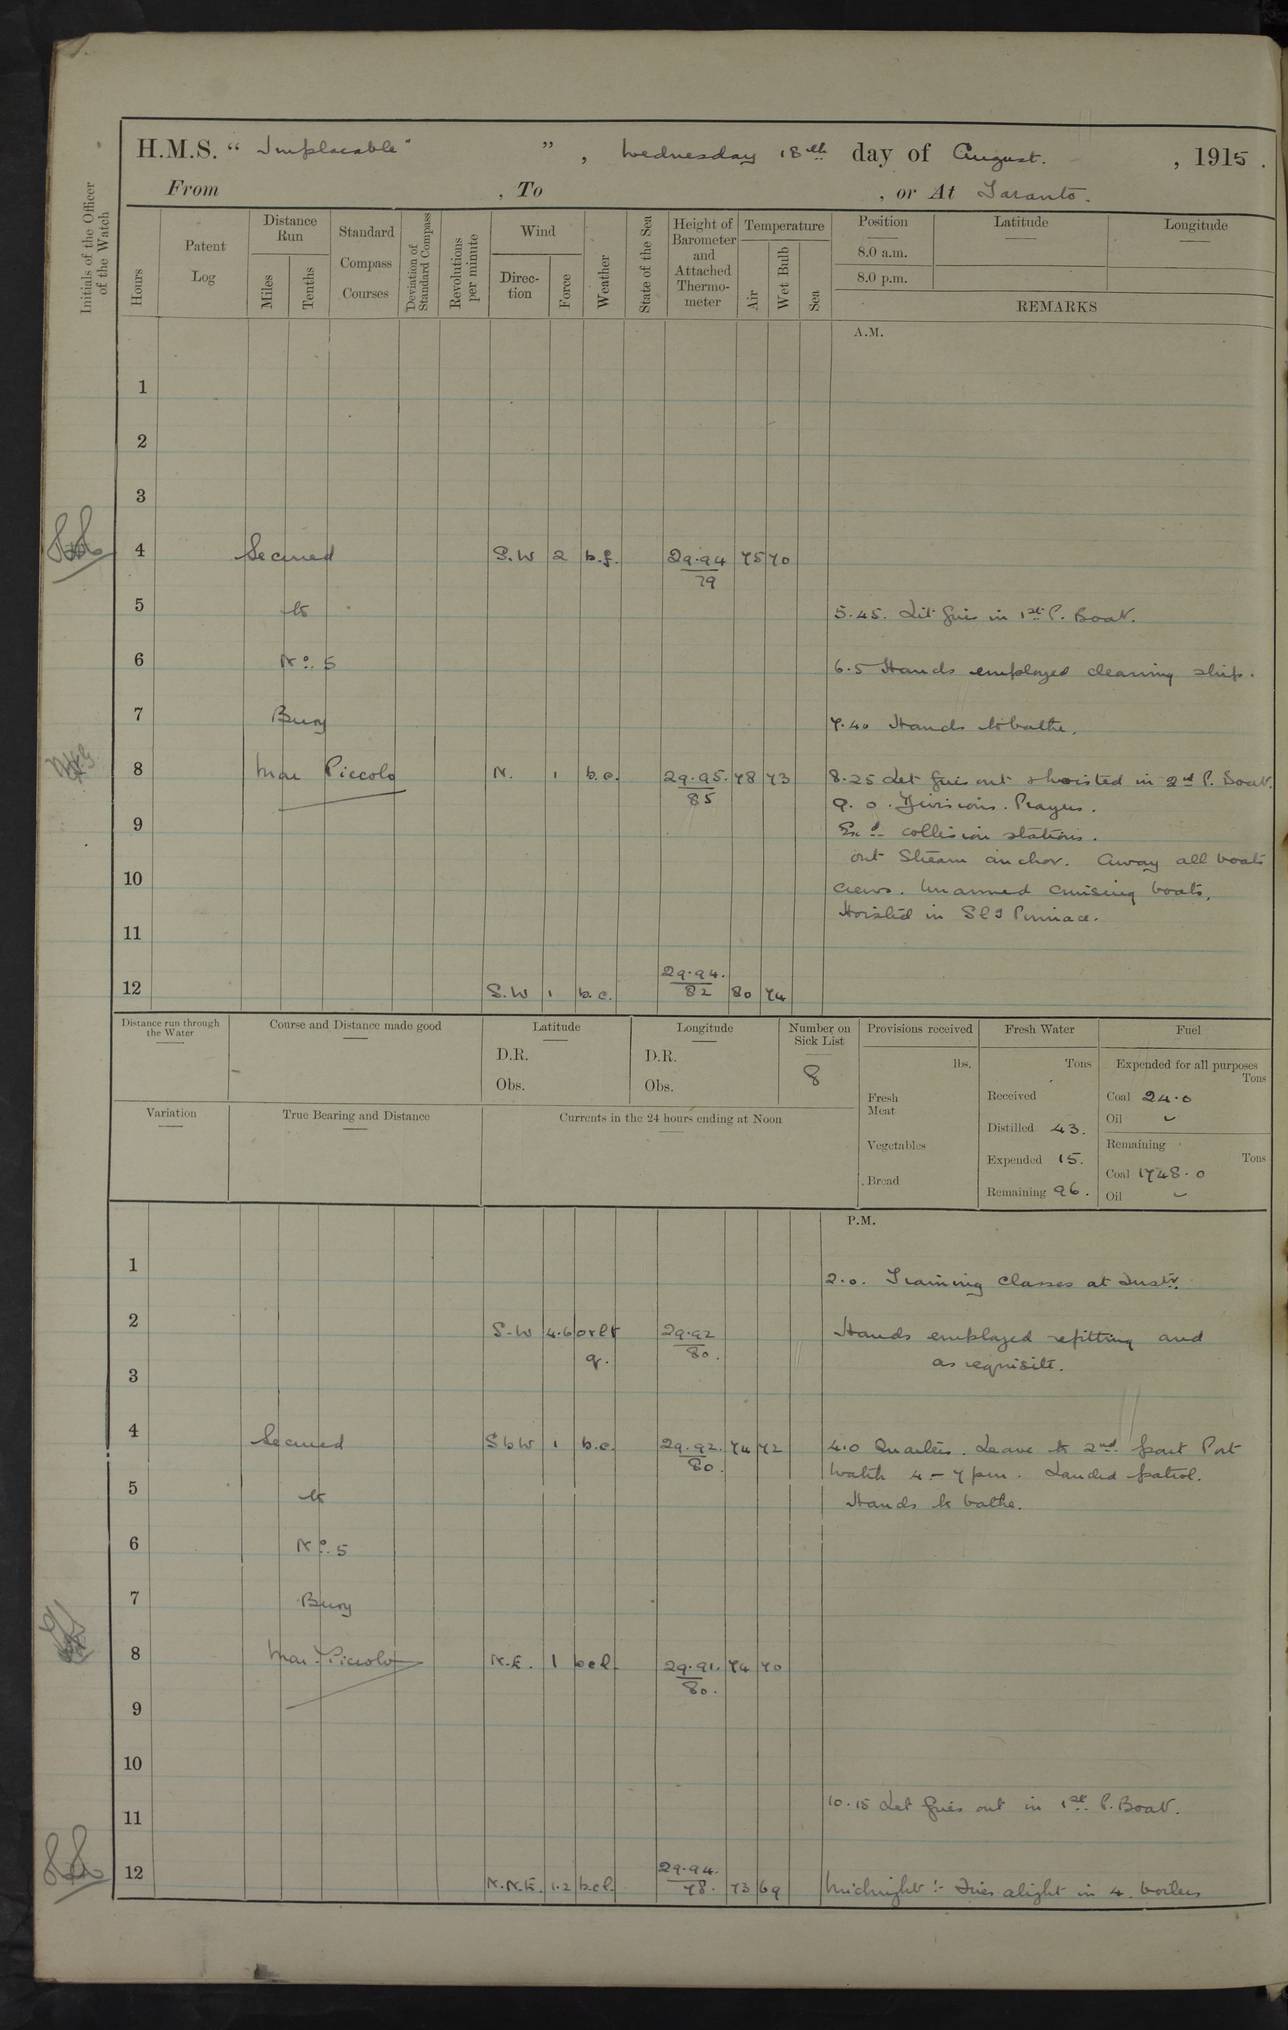 H.M.S. “ Implacable ” , Wednesday 18th day of August. , 1915 .
From , To , or At Taranto.
Initials of the Officer of the Watch
Hours
Patent Log
Distance Run
Miles
Tenths
Standard Compass Courses
Deviation of Standard Compass
Revolutions per minute
Wind
Direc-tion
Force
Weather
State of the Sea
Height of Barometer and Attached Thermo-meter
Temperature
Air
Wet Bulb
Sea
Position
8.0 a.m.
8.0 p.m.
Latitude
Longitude
REMARKS
A.M.
1
2
3
4 Secured S.W 2 b.f. 29.94 75 70
79
5 to 5.45. Lit fires in 1st P. Boat.
6 No. 5 6.5 Hands employed cleaning ship.
7 Buoy 7.40 Hands to bathe.
8 Mar Piccolo N. 1 b.c. 29.95. 78 73 8.25 Let fires out & hoisted in 2nd P. Boat.
85 9.0. Divisions. Prayers.
9 Exd collision stations.
out Stream anchor. Away all boats
10 crews. Manned cruising boats.
Hoisted in Sl & Pinnace.
11
29.94.
12 S.W 1 b.c. 82 80 74
Distance run through the Water
Course and Distance made good
Latitude
D.R.
Obs.
Longitude
D.R.
Obs.
Number on Sick List
8
Provisions received
lbs.
Fresh Meat
Vegetables
Bread
Fresh Water
Tons
Received
Distilled 43.
Expended 15.
Remaining 96.
Fuel
Expended for all purposes
Tons
Coal 24.0
Oil ~
Remaining
Tons
Coal 1748.0
Oil ~
Variation
True Bearing and Distance
Currents in the 24 hours ending at Noon
P.M.
1
2.0. Training Classes at Instn.
2 S.W 4.6 orlt 29.92 Hands employed refitting and
q. 80. as requisite.
3
4 Secured SbW 1 b.c. 29.92. 74 72 4.0 Quarters. Leave to 2nd part Port
80. Watch 4 – 7 pm. Landed patrol.
5 to Hands to bathe.
6 No. 5
7 Buoy
8 Mar Piccolo N.E. 1 bcl. 29.91. 74 70
80.
9
10
10.15 Let fires out in 1st P. Boat.
11
29.94.
12 N.N.E. 1.2 b.cl. 78. 73 69 Midnight :- Fires alight in 4 boilers